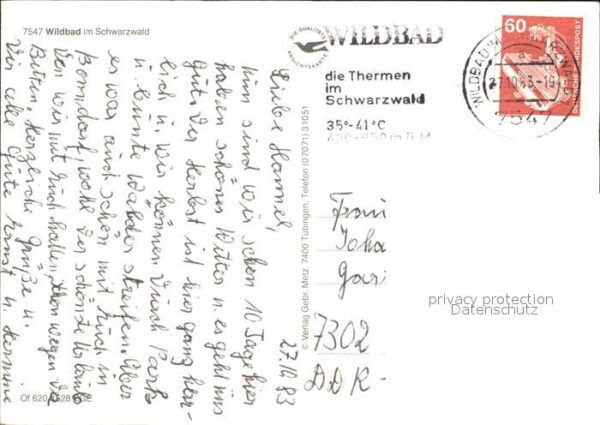 7547 Wildbad im Schwarzwald
DIE QUALITÄTS
ANSICHTSKARTE
WILDBAD
die Thermen
im
Schwarzwald
35°-41°C
430-950 m ü.M
60
DEUTSCHE BUNDESPOST
WILDBAD IM SCHWARZWALD
27.10.83-19
7547
27.10.83
Liebe Hannel,
Nun sind wir schon 10 Tage hier
haben schönes Wetter u. es geht uns
gut. Der Herbst ist hier ganz herr-
lich u. wir können durch Park
u. bunte Wälder streifen. Aber
es war auch schön mit Euch in
Bonndorf, wohl der schönste Urlaub
den wir mit Euch hatten, schon wegen der
Betten. Herzliche Grüße u.
viele Gute Ernst u. Hermine
© Verlag Gebr. Metz, 7400 Tübingen, Telefon (07071) 31051
Frau
Joha
Gar
7302
DDR-
privacy protection
Datenschutz
Of 620